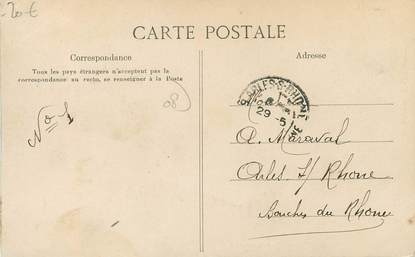 -20-€
CARTE POSTALE
Correspondance
Tous les pays étrangers n'acceptent pas la
correspondance au recto, se renseigner à la Poste
08
No 1
Adresse
ARLES-S-RHONE
29 -5
A. Maraval
Arles s/ Rhone
Bouches du Rhone